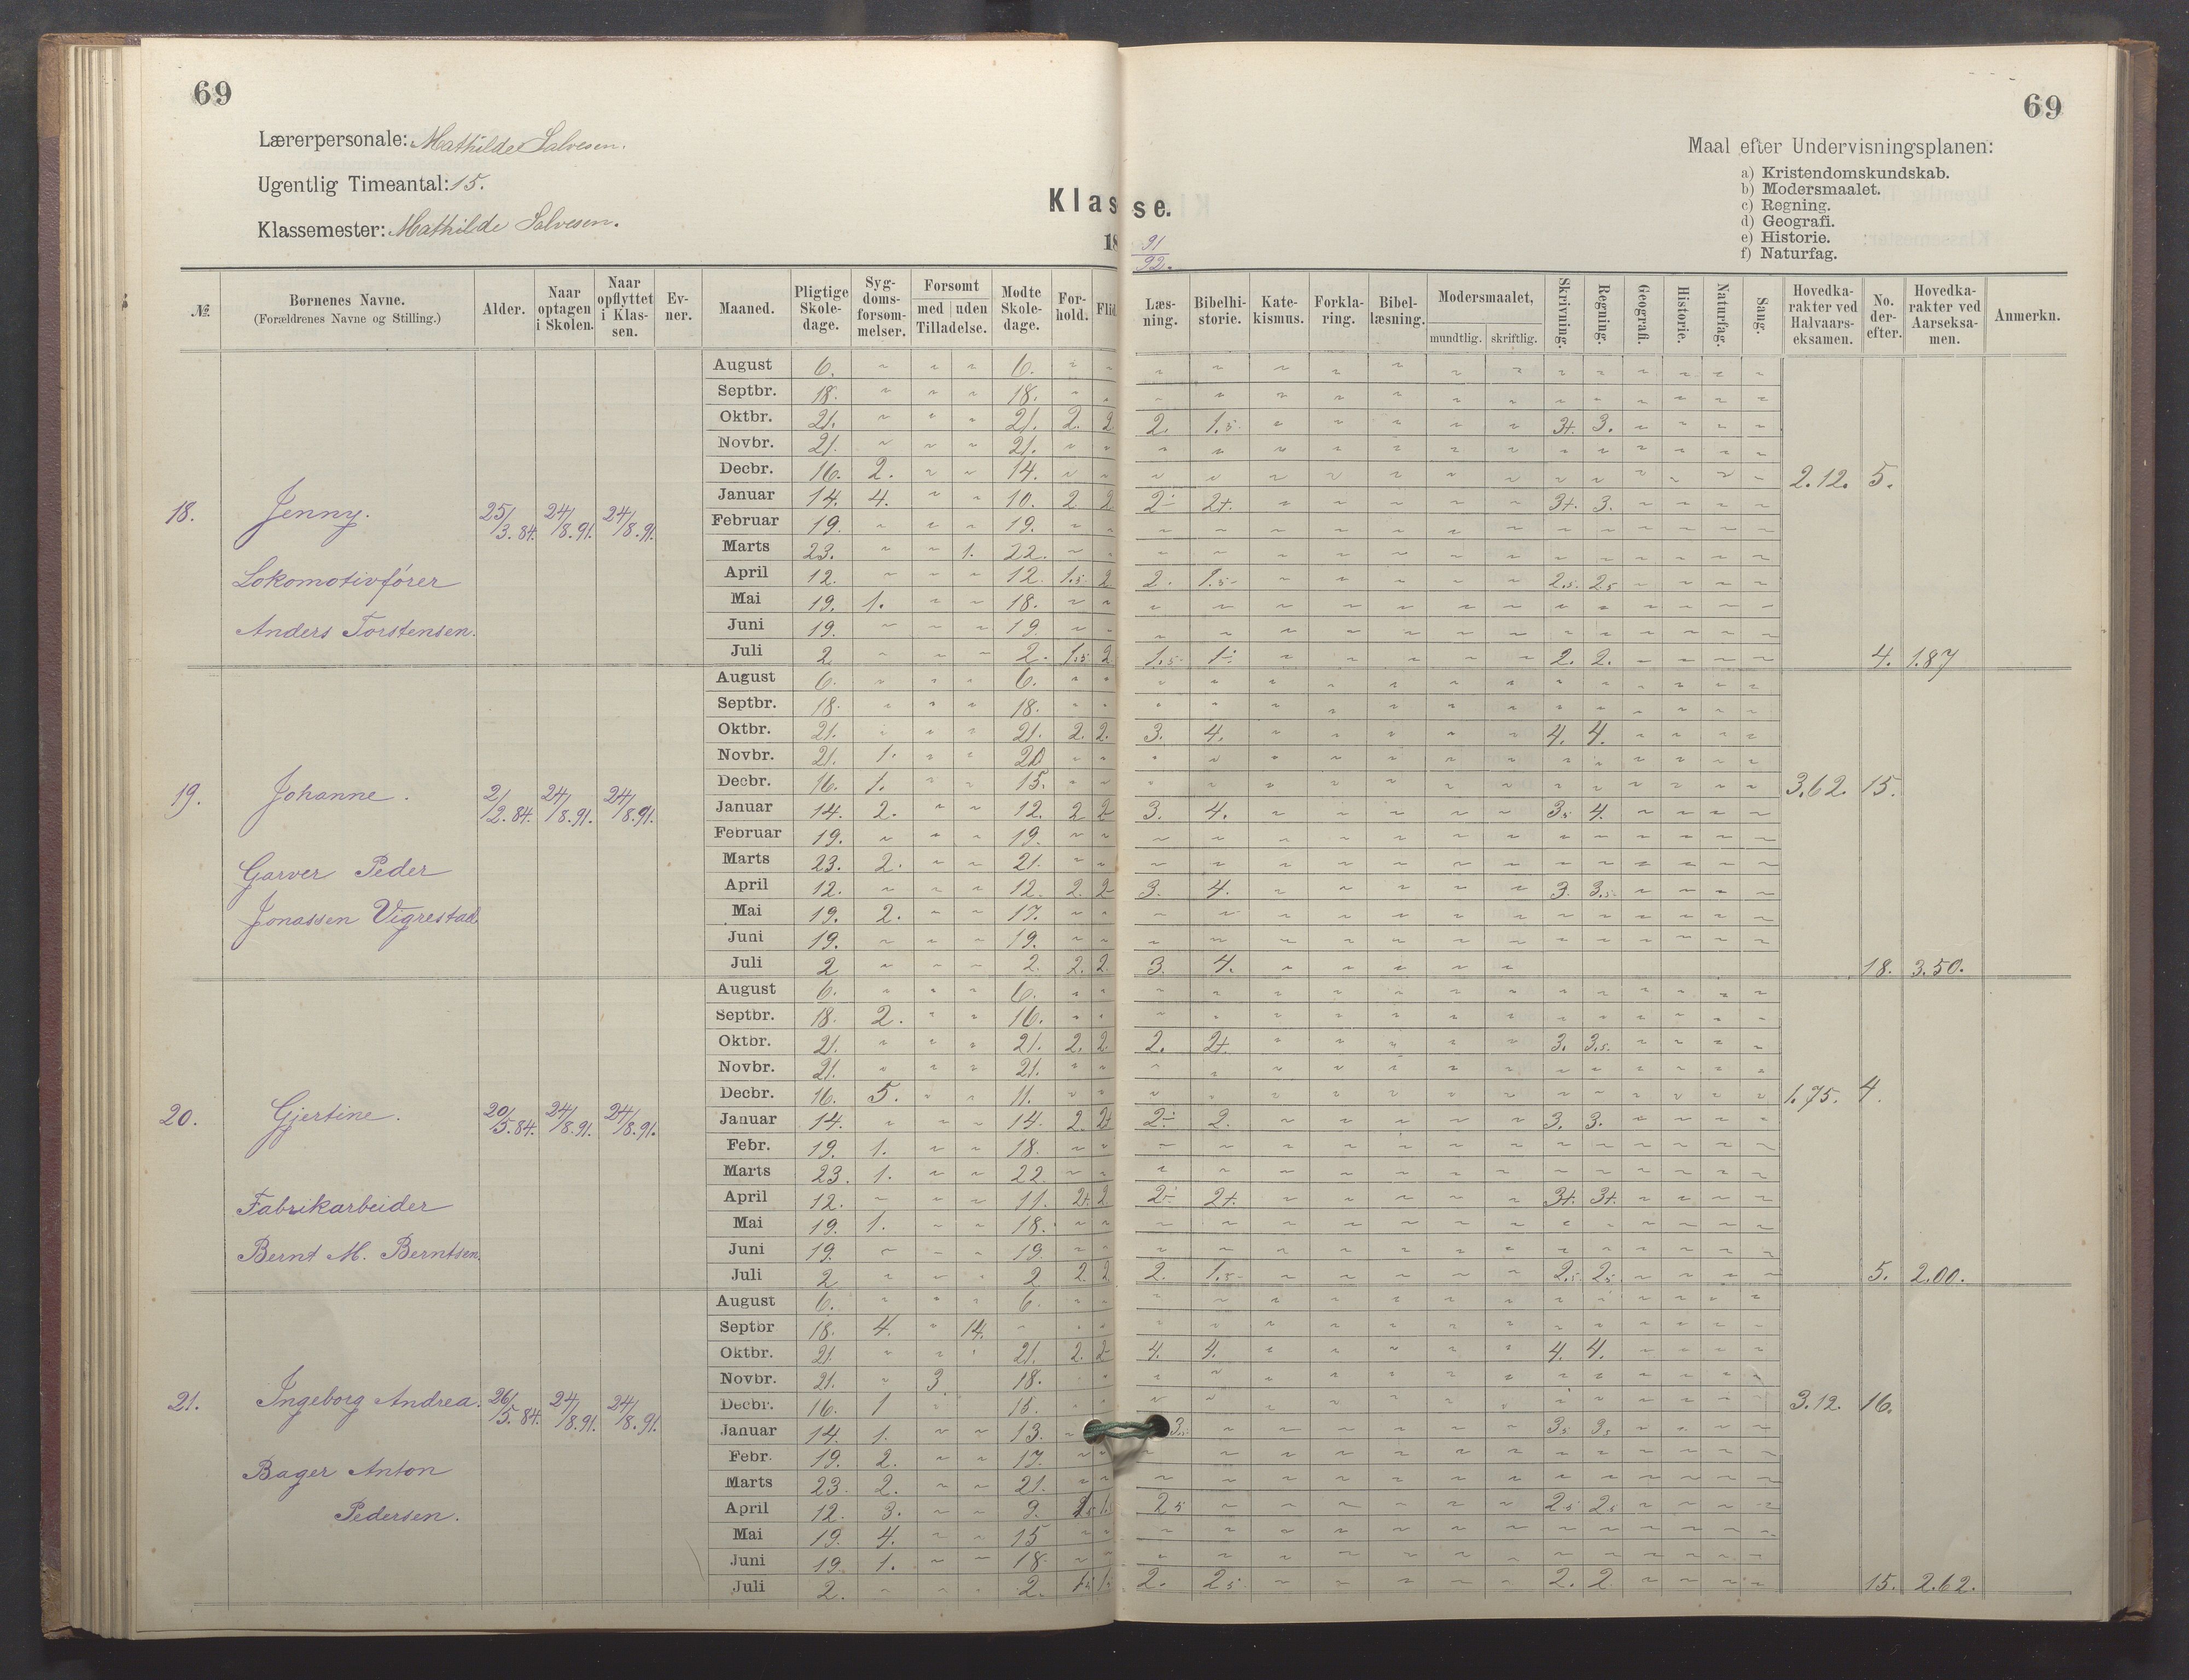 69
69
Lærerpersonale: Mathilde Salvesen.
Ugentlig Timeantal: 15.
Klassemester: Mathilde Salvesen.
Klasse.
18 91/92.
Maal efter Undervisningsplanen:
a) Kristendomskundskab.
b) Modersmaalet.
c) Regning.
d) Geografi.
e) Historie.
f) Naturfag.
№ Børnenes Navne. (Forældrenes Navne og Stilling.) Alder. Naar optagen i Skolen. Naar opflyttet i Klassen. Evner. Maaned. Pligtige Skoledage. Sygdomsforsømmelser. Forsømt med uden Tilladelse. Mødte Skoledage. Forhold. Flid Læsning. Bibelhistorie. Katekismus. Forklaring. Bibellæsning. Modersmaalet, mundtlig. skriftlig. Skrivning. Regning. Geografi. Historie. Naturfag. Sang. Hovedkarakter ved Halvaarseksamen. No. derefter. Hovedkarakter ved Aarseksamen. Anmerkn.
18. Jenny. 25/3.84. 24/8.91. 24/8.91.
Lokomotivfører
Anders Torstensen.
August 6. 6.
Septbr. 18. 18.
Oktbr. 21. 21. 2. 2 2. 1.5 3+. 3.
Novbr. 21. 21.
Decbr. 16. 2. 14. 2.12. 5.
Januar 14. 4. 10. 2 2 2÷ 2+. 3+. 3.
Februar 19. 19.
Marts 23. 1. 22.
April 12. 12. 1.5 2 2. 1.5 2.5. 2.5
Mai 19. 1. 18.
Juni 19. 19.
Juli 2 2. 1.5 2 1.5 1÷ 2. 2. 4. 1.87
19. Johanne. 2/12.84. 24/8.91. 24/8.91.
Garver Peder
Jonassen Vigrestad
August 6. 6.
Septbr. 18. 18.
Oktbr. 21. 21. 2. 2. 3. 4. 4. 4.
Novbr. 21. 1. 20
Decbr. 16. 1. 15. 3.62. 15.
Januar 14. 2. 12. 2 2 3. 4. 3.5 4.
Februar 19. 19.
Marts 23. 2. 21.
April 12. 12. 2. 2 3. 4. 3. 3.5.
Mai 19. 2. 17.
Juni 19. 19.
Juli 2 2. 2. 2. 3. 4. 18. 3.50.
20. Gjertine. 20/5.84. 24/8.91. 24/8.91.
Fabrikarbeider
Bernt M. Berntsen.
August 6. 6.
Septbr. 18. 2. 16.
Oktbr. 21. 21. 2. 2 2. 2+. 3. 3.5.
Novbr. 21. 21.
Decbr. 16. 5. 11. 1.75. 4.
Januar 14. 14. 2. 2+ 2÷ 2. 3. 3.
Febr. 19. 1. 18.
Marts 23. 1. 22.
April 12. 11. 2+ 2 2÷ 2+. 3+. 3+.
Mai 19. 1. 18.
Juni 19. 19.
Juli 2 2 2. 2 2. 1.5 2.5 2.5 5. 2.00.
21. Ingeborg Andrea. 26/5.84. 24/8.91. 24/8.91.
Bager Anton
Pedersen.
August 6. 6.
Septbr 18. 4. 14.
Oktbr. 21 21. 2. 2 4. 4. 4. 4.
Novbr. 21. 3 18.
Decbr. 16. 1 15. 3.12. 16.
Januar 14. 1. 13. 3. 3.5 3.5
Febr. 19. 2. 17.
Marts 23. 2. 21.
April 12. 3. 9. 2.5 2.5 2.5
Mai 19. 4. 15
Juni 19. 1. 18.
Juli 2. 2. 1.5 1. 2. 2.5 2. 2 15. 2.62.